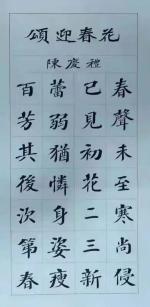 頌迎春花
陳慶禮
春聲未至寒尚侵
已見初花二三新
蕾弱猶憐身姿瘦
百芳其後次第春